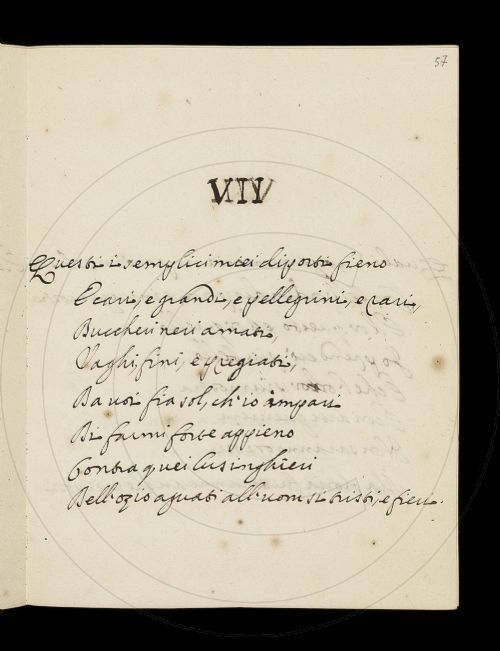 57
VIIV
Questi i semplici miei diporti fieno
E cari, e grandi, e pellegrini, e rari,
Buccheri neri amati,
Vaghi, fini, e pregiati,
Da voi fia sol, ch'io impari
Di farmi forte appieno
Contra quei lusinghieri
Dell'ozio aguati all'uom sì tristi, e fieri.